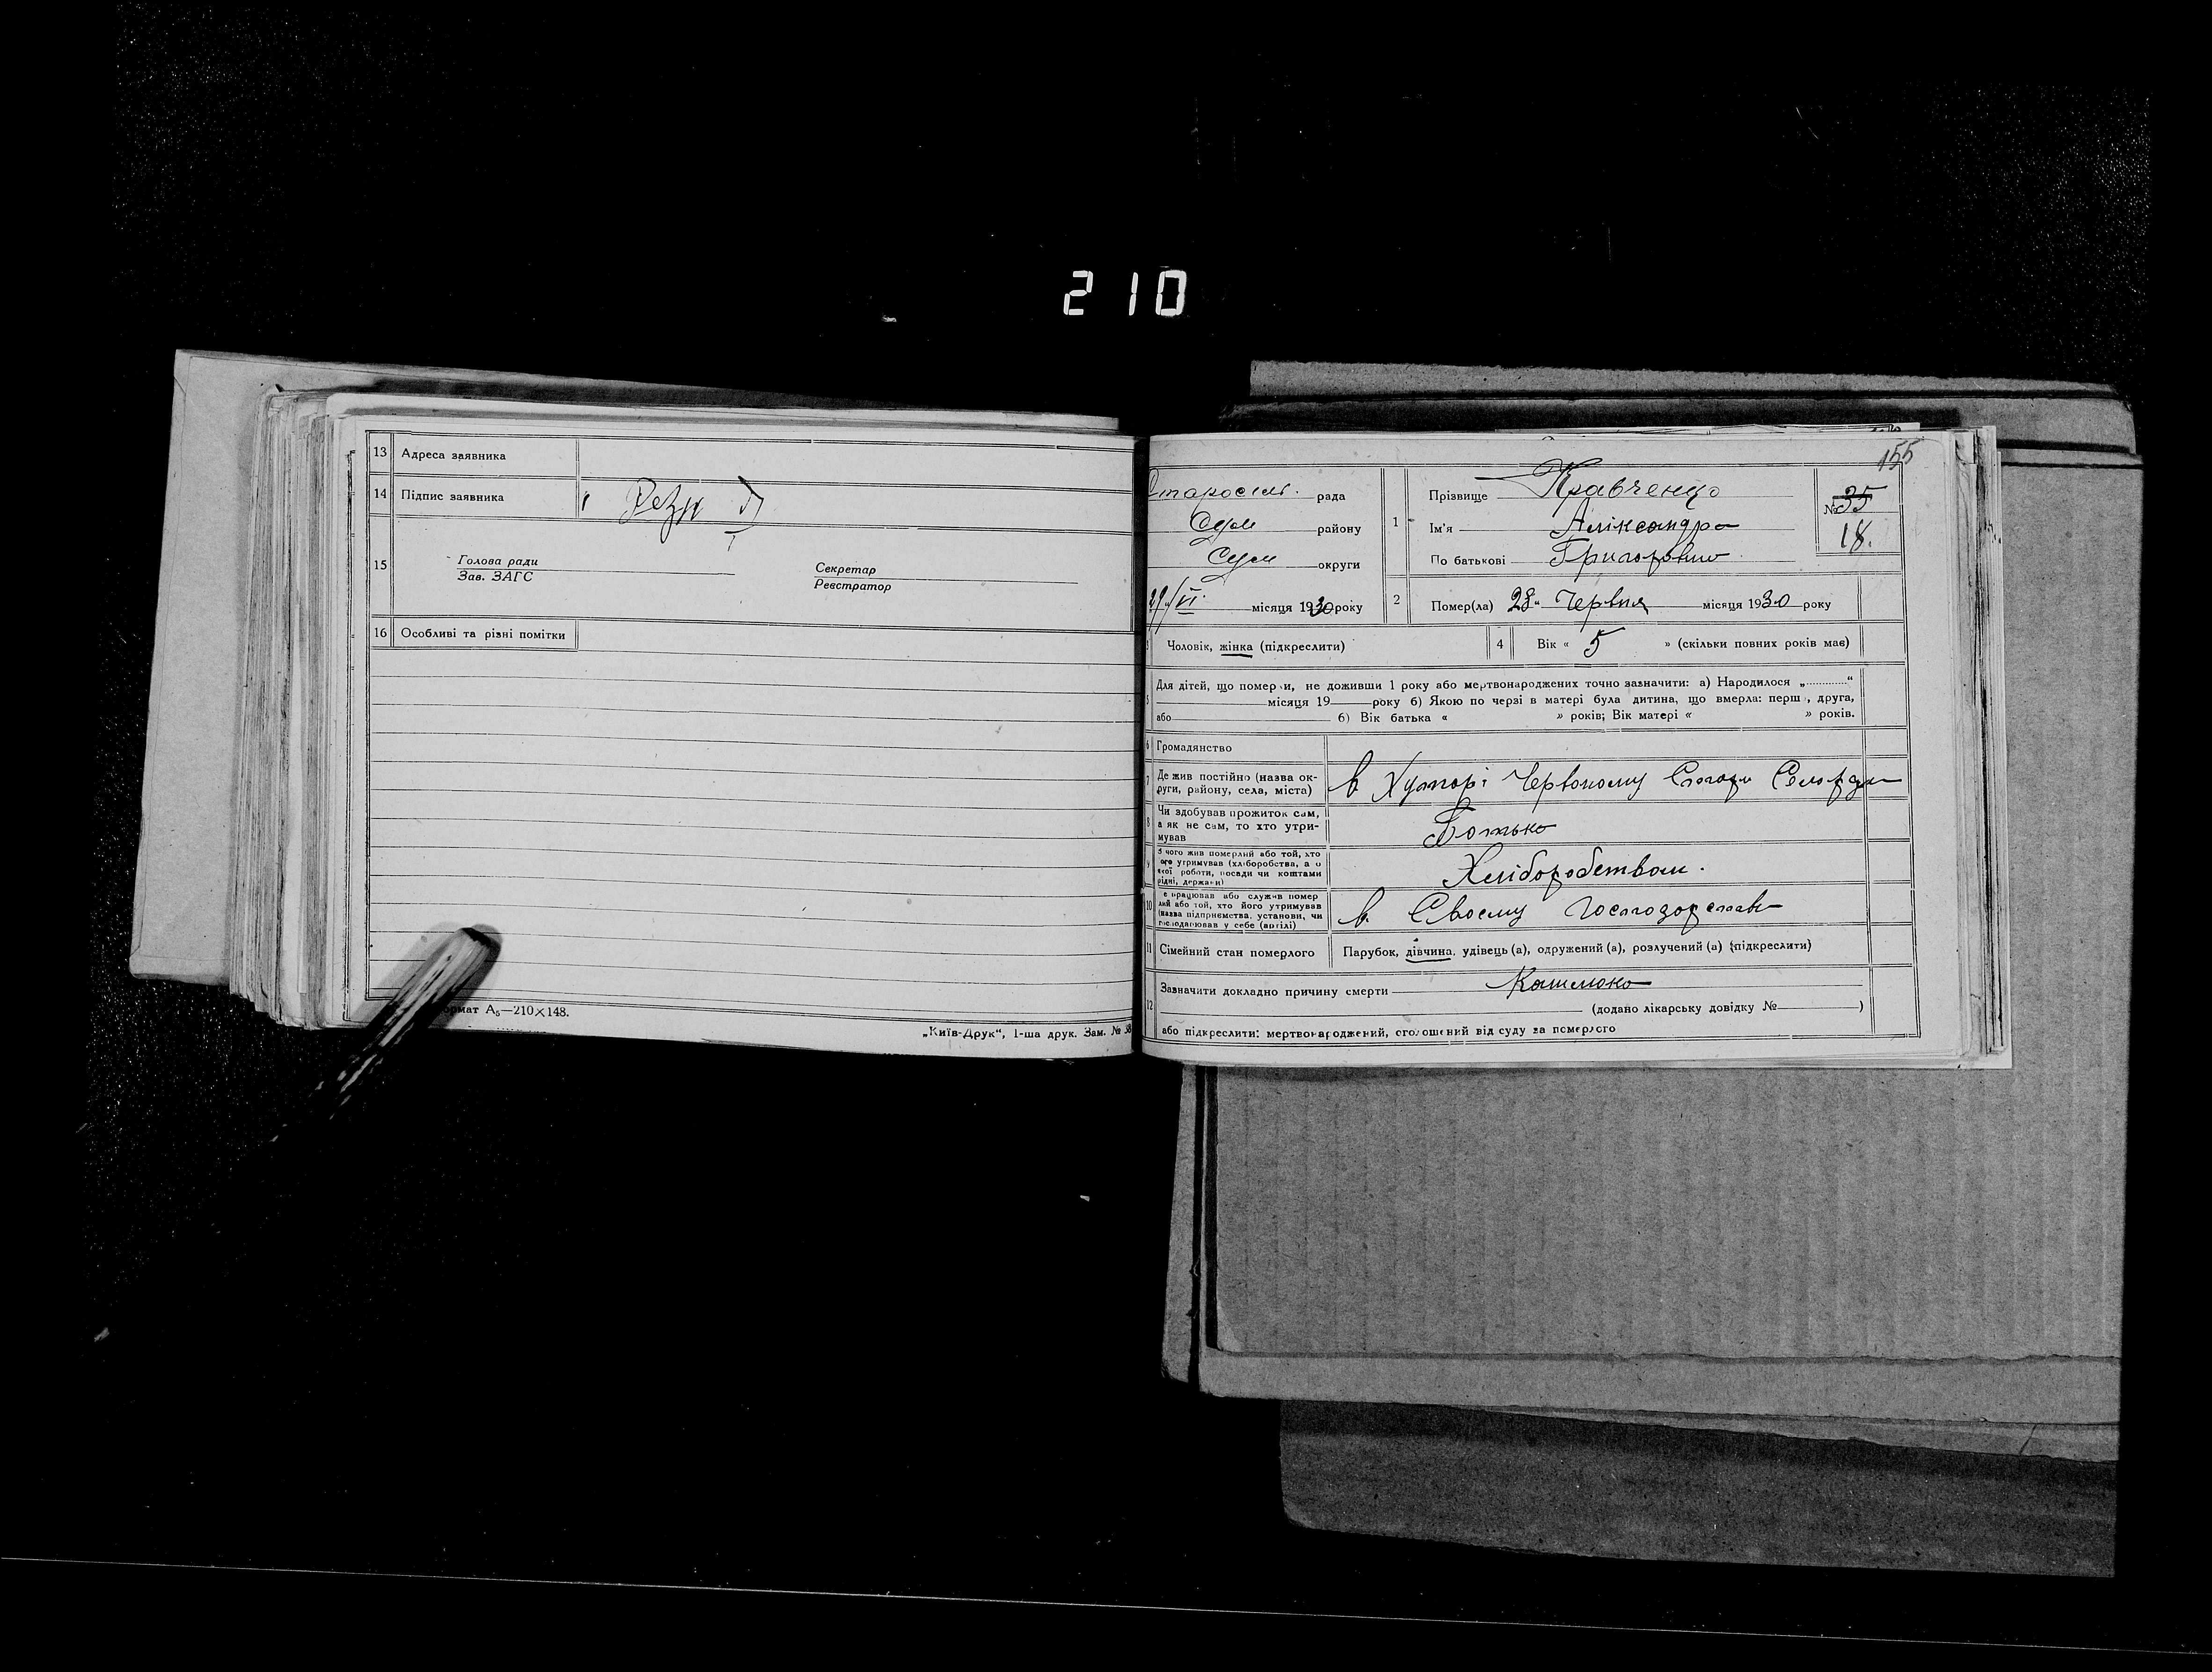 210
13 Адреса заявника
14 Підпис заявника
15 Голова ради
Зав. ЗАГС
Секретар
Реєстратор
16 Особливі та різні помітки
формат А₅—210×148.
„Київ-Друк“, 1-ша друк. Зам. № 38
155
Старосіль. рада
Сум району
Сум округи
29/VI місяця 1930 року
1 Прізвище Кравченко
Ім'я Аліксандра
По батькові Григоровна
№ 35
18.
2 Помер(ла) 28 „ Червня місяця 1930 року
3 Чоловік, жінка (підкреслити)
4 Вік « 5 » (скільки повних років має)
5 Для дітей, що померли, не доживши 1 року або мертвонароджених точно зазначити: а) Народилося „............“
місяця 19 року б) Якою по черзі в матері була дитина, що вмерла: перша, друга,
або б) Вік батька « » років; Вік матері « » років.
6 Громадянство
7 Де жив постійно (назва округи, району, села, міста) в Хуторі Червоному
8 Чи здобував прожиток сам, а як не сам, то хто утримував Батько
9 З чого жив померлий або той, хто його утримував (хліборобства, а о якої роботи, посади чи коштами рідні, держави) Хліборобством.
10 Де працював або служив помер лий або той, хто його утримував (назва підприємства, установи, чи господарював у себе (артілі) в Своєму Господарстві
11 Сімейний стан померлого Парубок, дівчина, удівець (а), одружений (а), розлучений (а) (підкреслити)
12 Зазначити докладно причину смерти Кашлюка
(додано лікарську довідку № )
або підкреслити: мертвонароджений, оголошений від суду за померлого